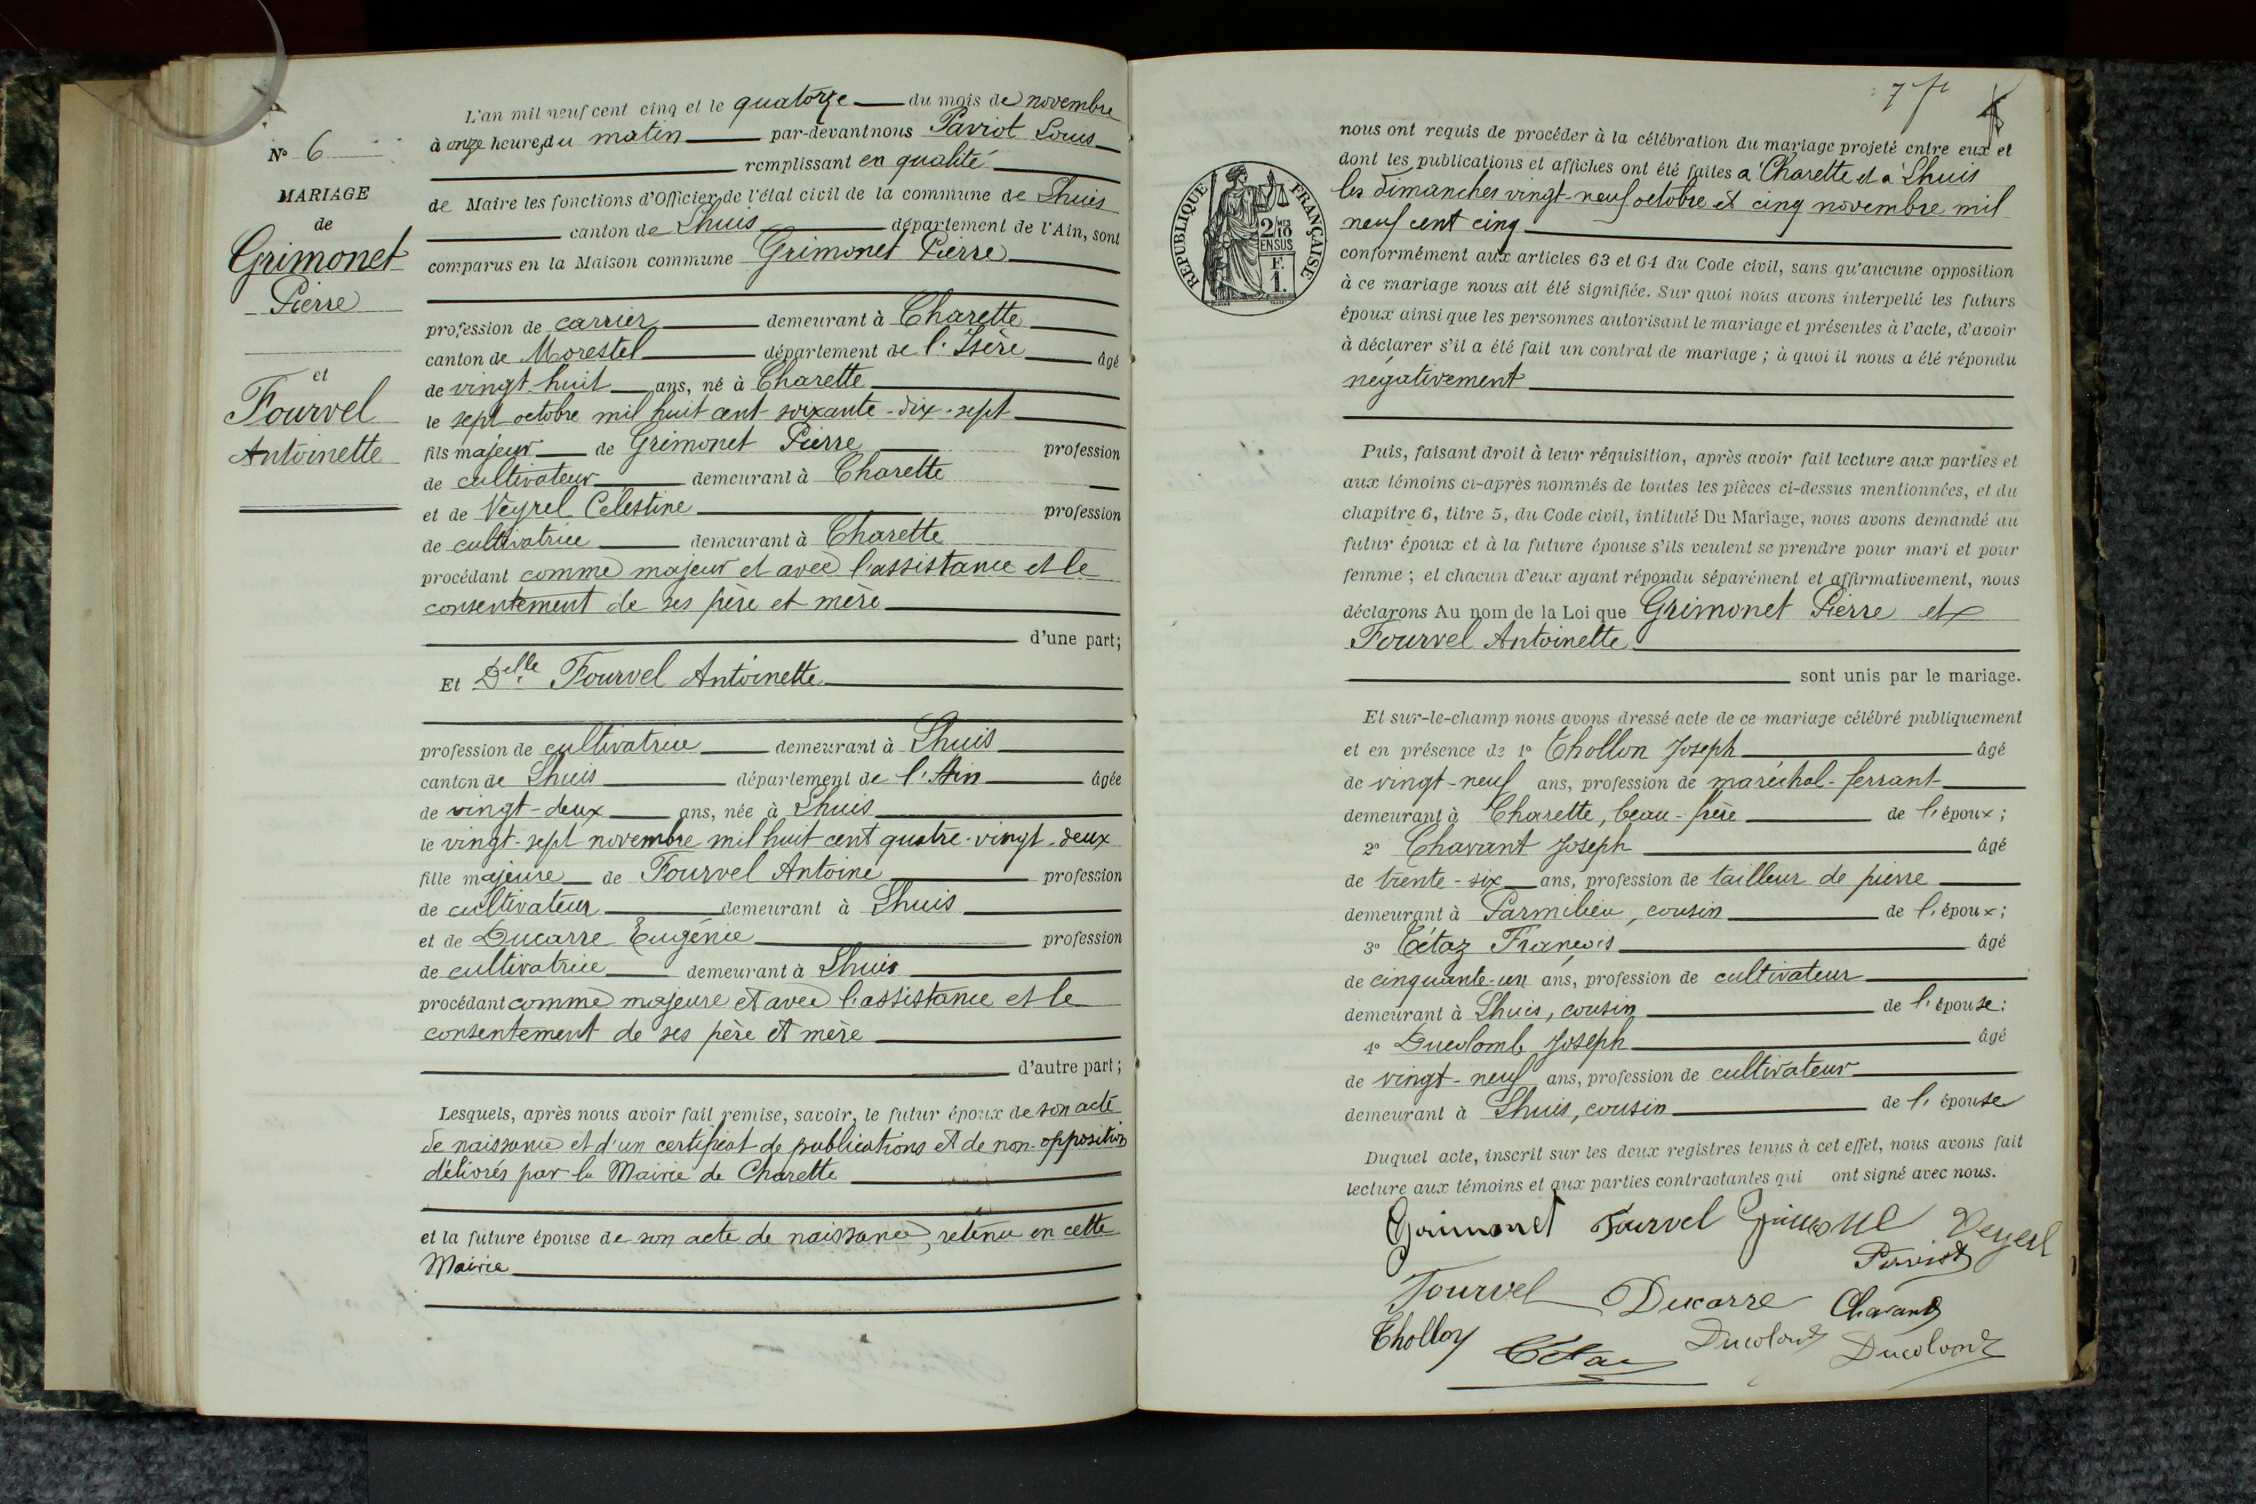 L'an mil neuf cent cinq et le quatorze du mois de novembre
à onze heures du matin par-devant nous Paviot Louis
remplissant en qualité
de Maire les fonctions d'Officier de l'état civil de la commune de Lhuis
canton de Lhuis département de l'Ain, sont
comparus en la Maison commune Grimonet Pierre
profession de carrier demeurant à Charette
canton de Morestel département de l'Isère âgé
de vingt huit ans, né à Charette
le sept octobre mil huit cent soixante-dix-sept
fils majeur de Grimonet Pierre profession
de cultivateur demeurant à Charette
et de Veyrel Célestine profession
de cultivatrice demeurant à Charette
procédant comme majeur et avec l'assistance et le
consentement de ses père et mère
d'une part;
Et Delle Fourvel Antoinette
profession de cultivatrice demeurant à Lhuis
canton de Lhuis département de l'Ain âgée
de vingt-deux ans, née à Lhuis
le vingt-sept novembre mil huit cent quatre-vingt-deux
fille majeure de Fourvel Antoine profession
de cultivateur demeurant à Lhuis
et de Ducarre Eugénie profession
de cultivatrice demeurant à Lhuis
procédant comme majeure et avec l'assistance et le
consentement de ses père et mère
d'autre part;
Lesquels, après nous avoir fait remise, savoir, le futur époux de son acte
de naissance et d'un certificat de publications et de non-opposition
délivrés par la Mairie de Charette
et la future épouse de son acte de naissance, retenu en cette
Mairie
N° 6
MARIAGE
de
Grimonet
Pierre
et
Fourvel
Antoinette
7
RÉPUBLIQUE FRANÇAISE
2/10
EN SUS
F.
1.
nous ont requis de procéder à la célébration du mariage projeté entre eux et
dont les publications et affiches ont été faites à Charette et à Lhuis
les dimanches vingt-neuf octobre et cinq novembre mil
neuf cent cinq
conformément aux articles 63 et 64 du Code civil, sans qu'aucune opposition
à ce mariage nous ait été signifiée. Sur quoi nous avons interpellé les futurs
époux ainsi que les personnes autorisant le mariage et présentes à l'acte, d'avoir
à déclarer s'il a été fait un contrat de mariage ; à quoi il nous a été répondu
négativement
Puis, faisant droit à leur réquisition, après avoir fait lecture aux parties et
aux témoins ci-après nommés de toutes les pièces ci-dessus mentionnées, et du
chapitre 6, titre 5, du Code civil, intitulé Du Mariage, nous avons demandé au
futur époux et à la future épouse s'ils veulent se prendre pour mari et pour
femme ; et chacun d'eux ayant répondu séparément et affirmativement, nous
déclarons Au nom de la Loi que Grimonet Pierre et
Fourvel Antoinette
sont unis par le mariage.
Et sur-le-champ nous avons dressé acte de ce mariage célébré publiquement
et en présence de 1° Thollon Joseph âgé
de vingt-neuf ans, profession de maréchal-ferrant
demeurant à Charette, beau-frère de l'époux;
2° Chavant Joseph âgé
de trente-six ans, profession de tailleur de pierre
demeurant à Parmilieu, cousin de l'époux;
3° Tétaz François âgé
de cinquante-un ans, profession de cultivateur
demeurant à Lhuis, cousin de l'épouse;
4° Ducolomb Joseph âgé
de vingt-neuf ans, profession de cultivateur
demeurant à Lhuis, cousin de l'épouse
Duquel acte, inscrit sur les deux registres tenus à cet effet, nous avons fait
lecture aux témoins et aux parties contractantes qui ont signé avec nous.
Grimonet Fourvel Grimonet Veyrel
Paviot
Fourvel Ducarre Chavant
Thollon Tétaz Ducolomb Ducolomb